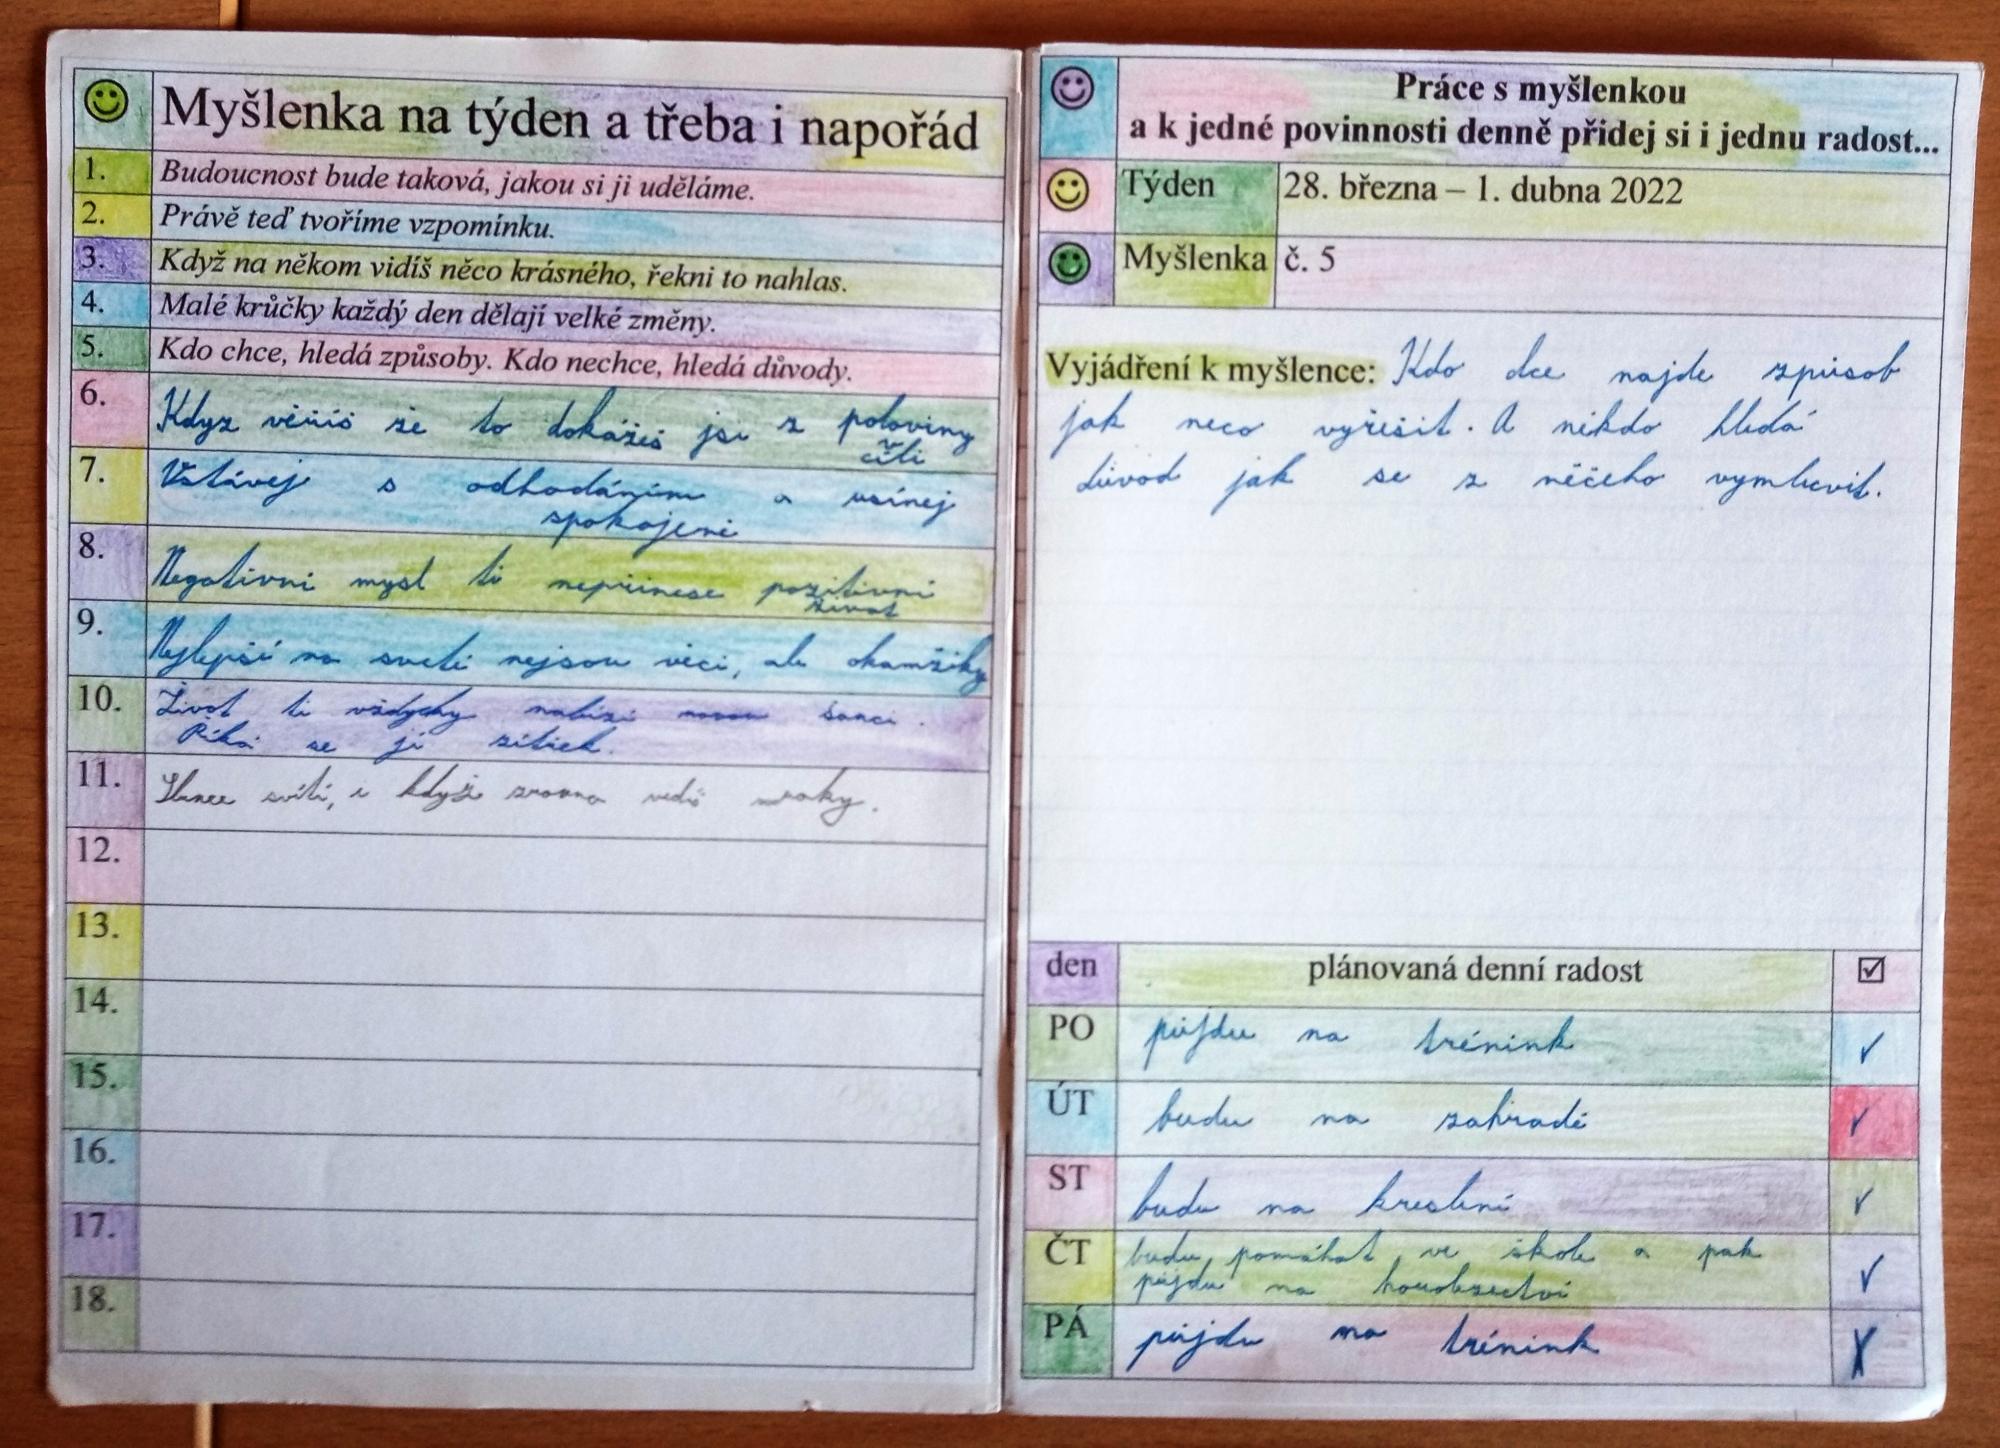 Myšlenka na týden a třeba i napořád
1. Budoucnost bude taková, jakou si ji uděláme.
2. Právě teď tvoříme vzpomínku.
3. Když na někom vidíš něco krásného, řekni to nahlas.
4. Malé krůčky každý den dělají velké změny.
5. Kdo chce, hledá způsoby. Kdo nechce, hledá důvody.
6. Kdyz věříš že to dokážeš jsi z poloviny
cíli
7. Vstávej s odhodáním a usínej
spokojeně
8. Negativní mysl ti nepřinese pozitivní
život
9. Nejlepší na světě nejsou věci, ale okamžiky
10. Život ti vždycky nabízí novou šanci.
Říká se jí zítřek.
11. Slunce svítí, i když zrovna vidíš mraky.
12.
13.
14.
15.
16.
17.
18.
Práce s myšlenkou
a k jedné povinnosti denně přidej si i jednu radost...
Týden 28. března – 1. dubna 2022
Myšlenka č. 5
Vyjádření k myšlence: Kdo chce najde způsob
jak neco vyřešit. A někdo hledá
důvod jak se z něčeho vymluvit.
den plánovaná denní radost ☑
PO půjdu na trénink ✓
ÚT budu na zahradě ✓
ST budu na kreslení ✓
ČT budu pomáhat ve škole a pak
půjdu na houbařství ✓
PÁ půjdu na trénink ✗